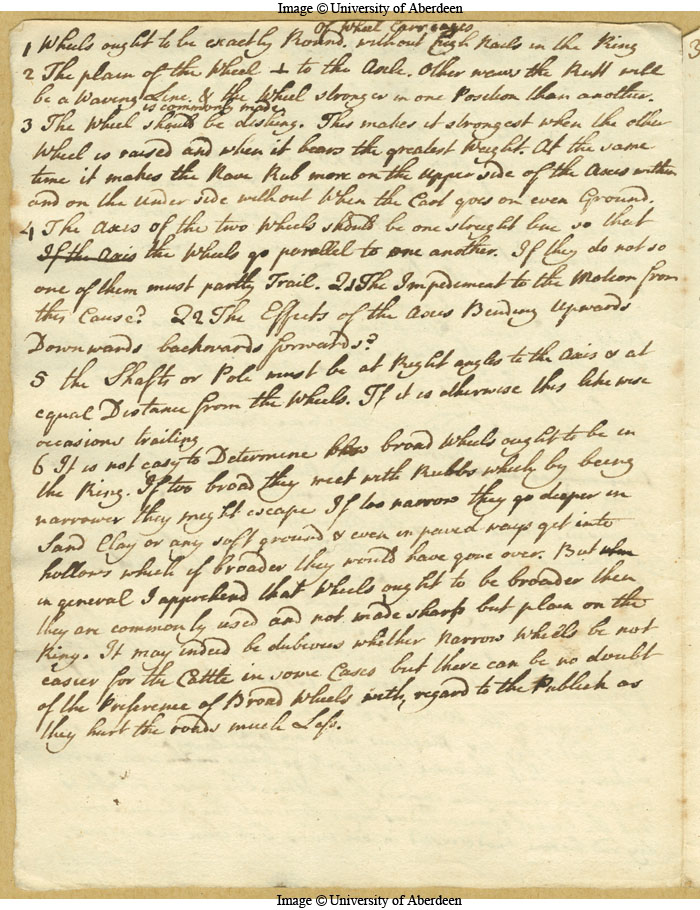 Image © University of Aberdeen
Of Wheel Carriages
1 Wheels ought to be exactly Round. without high Nails in the Ring
2 The plain of the Wheel ⊥ to the Axle. Other ways the Rutt will
be a Waving Line. & the Wheel stronger in one Position than another.
is commonly made
3 The Wheel should be dishing. This makes it strongest when the other
Wheel is raised and when it bears the greatest Weight. At the same
time it makes the Nave Rub more on the upper side of the Axes within
and on the under side without When the Cart goes on even Ground.
4 The Axis of the two Wheels should be one streight line so that
If the Axis the Wheels go parallel to one another. If they do not so
one of them must partly Trail. Q1 The Impediment to the Motion from
this Cause? Q2 The Effects of the Axes Bending Upwards
Downwards backwards forwards?
5 the Shafts or Pole must be at Right angles to the Axis & at
equal Distance from the Wheels. If it is otherwise this likewise
occasions trailing
6 It is not easy to Determine how broad Wheels ought to be in
the Ring. If too broad they meet with Rubbs which by being
narrower they might escape If too narrow they go deeper in
Sand Clay or any soft ground & even in paved ways get into
hollows which if broader they would have gone over. But
in general I apprehend that Wheels ought to be broader then
they are commonly used and not made sharp but plain on the
Ring. It may indeed be dubious whether narrow Wheels be not
easier for the Cattle in some Cases but there can be no doubt
of the Preference of Broad Wheels with regard to the Publick as
they hurt the roads much Less.
3
Image © University of Aberdeen